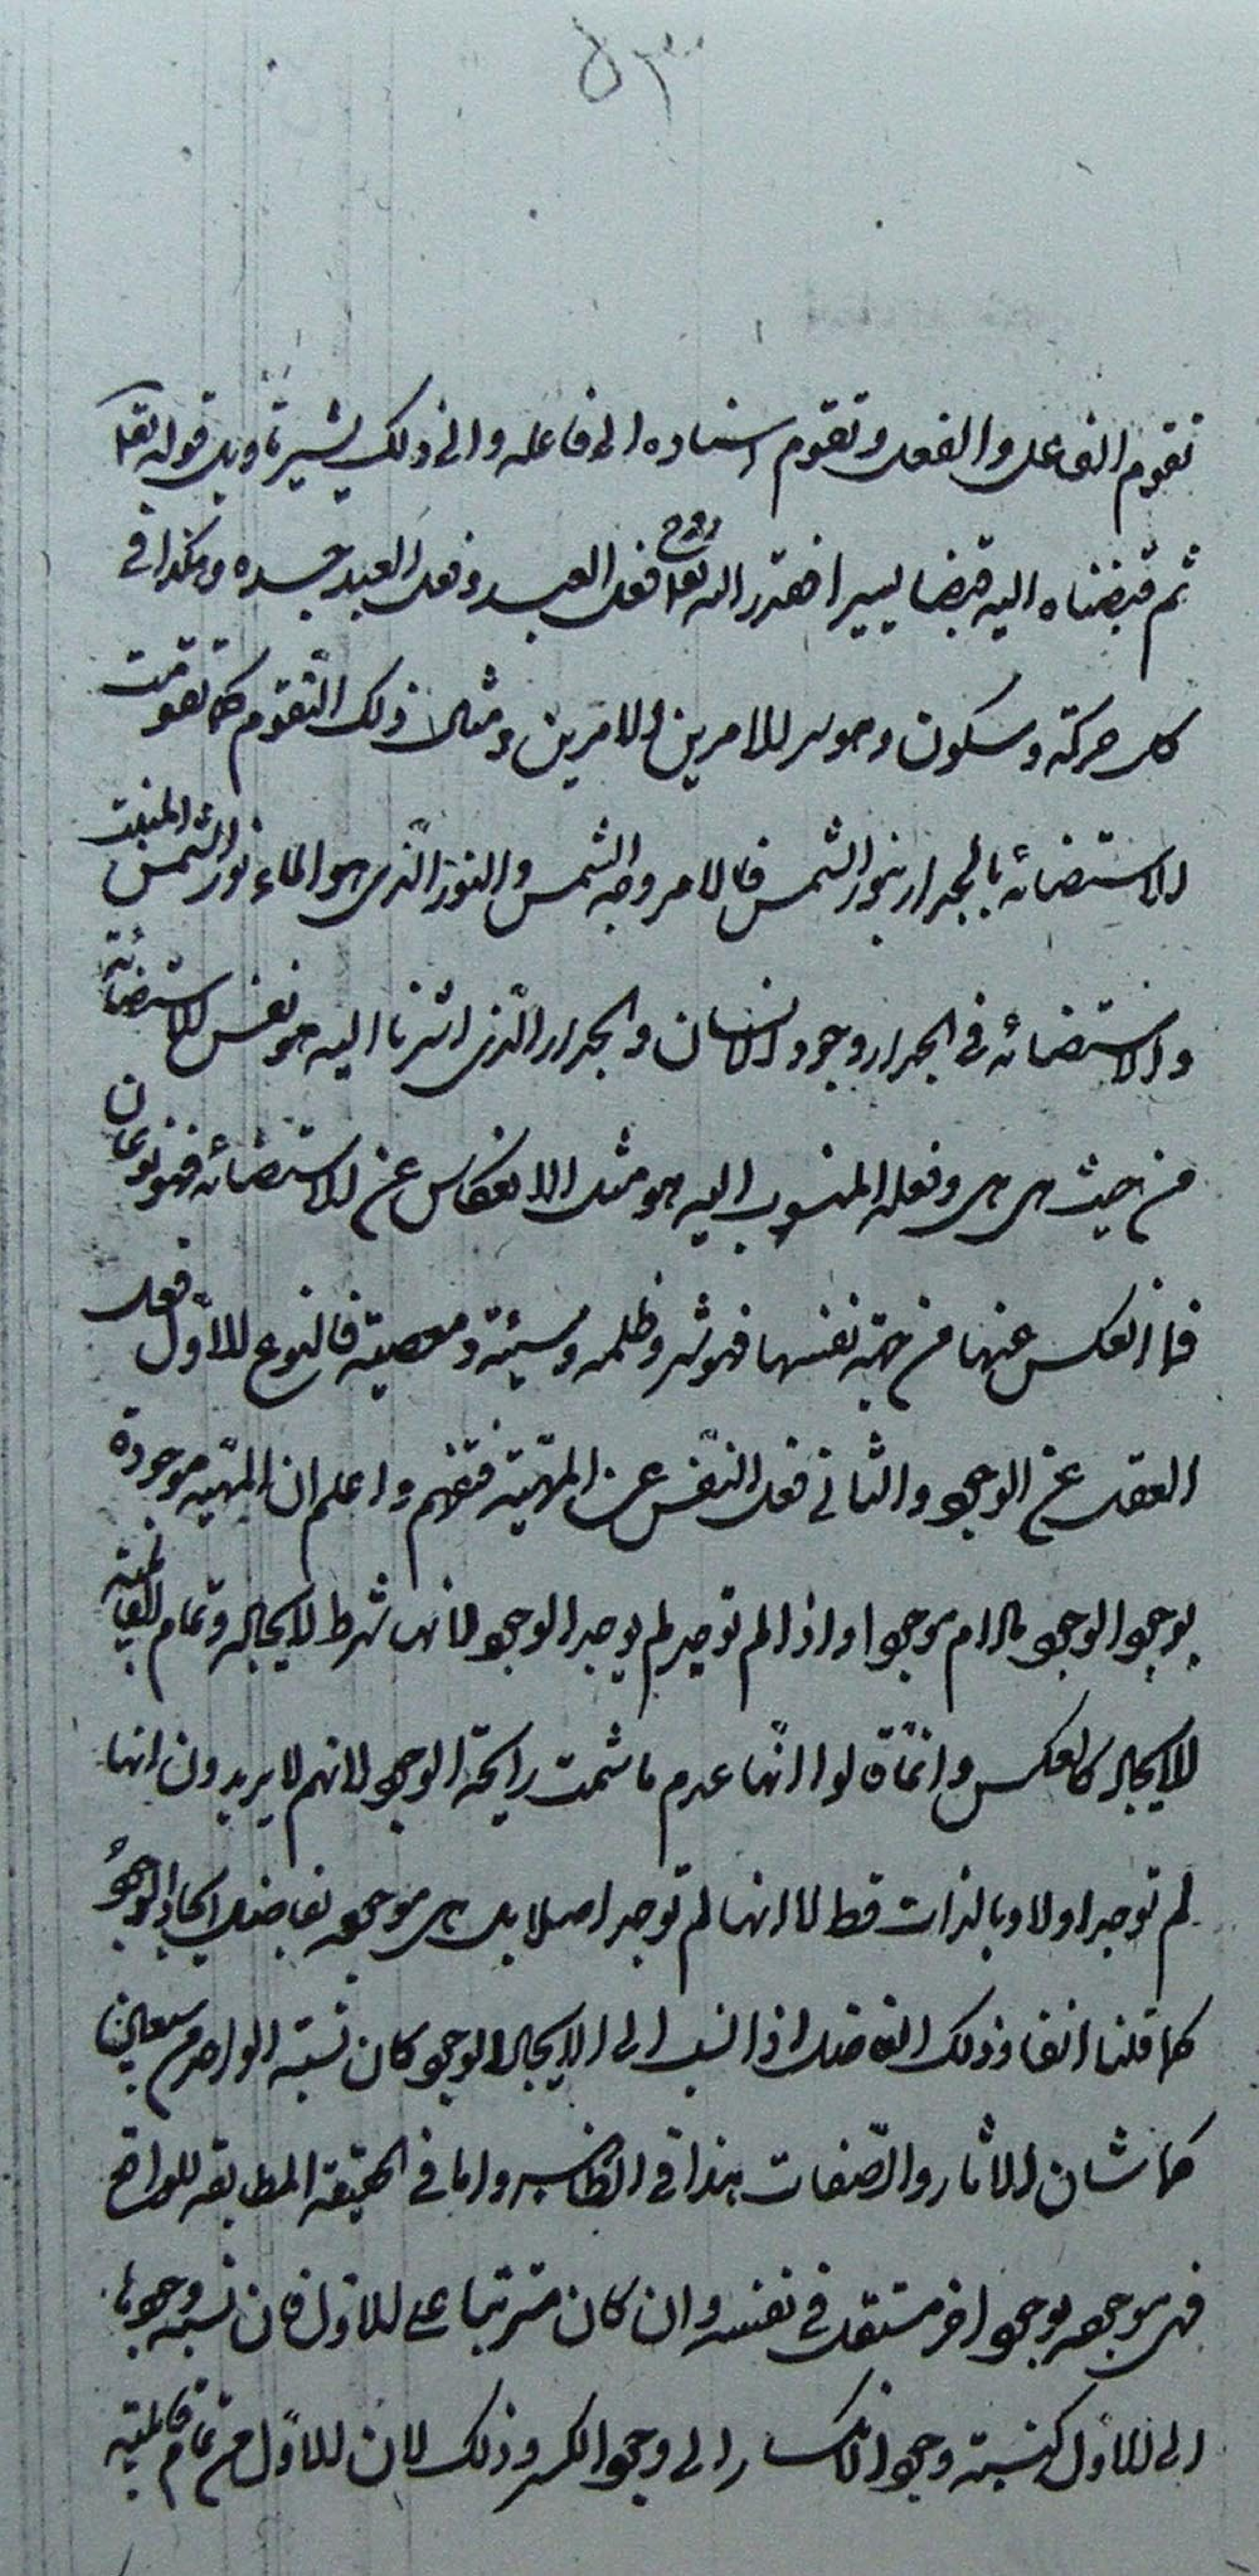 ۵۳
تقوم الفاعل والفعل وتقوم اسناده الى فاعله والى ذلك يشير تاويل قوله تعا
ثم قبضناه الينا قبضا يسيرا فقدر الله تعا روح فعل العبد وفعل العبد جسده وهكذا في
كل حركة وسكون وهو سر الامرين الامرين ومثال ذلك التقوم كما تقومت
الاستضائه بالجدار بنور الشمس فالامر وجه الشمس والنور الذي هو الماء نور الشمس المنبث
والاستضائه في الجدار وجود الانسان والجدار الذي اشرنا اليه هو نفس الاستضائة
من حيث هي هي وفعله المنسوب اليه هو مثل الانعكاس عن الاستضائه فهو نوعان
فما انعكس عنها من جهة نفسها فهو شر وظلمه وسيئة ومعصية فالنوع الاول فعل
العقل عن الوجود والثاني فعل النفس عن المهية فتفهم واعلم ان المهيه موجودة
بوجود الوجود مادام موجودا واذا لم توجد لم يوجد الوجود لانها شرط لايجاده وتمام لقابليته
للايجاد كالعكس وانما قالوا انها عدم ما شمت رايحة الوجود لانهم لا يريدون انها
لم توجد اولا وبالذات قط لا انها لم توجد اصلا بل هي موجوده بفاضل ايجاد الوجود
كما قلنا انفا وذلك الفاضل اذا نسب الى الايجاد الوجود كان نسبة الواحد من سبعين
كما شان الاثار والصفات هذا في الظاهر واما في الحقيقة المطابقه للواقع
فهي موجوده بوجود اخر مستقل في نفسه وان كان مترتبا على الاول فان نسبه وجودها
الى الاول كنسبة وجود الانكسار الى وجود الكسر وذلك لان الاول من تمام قابلية